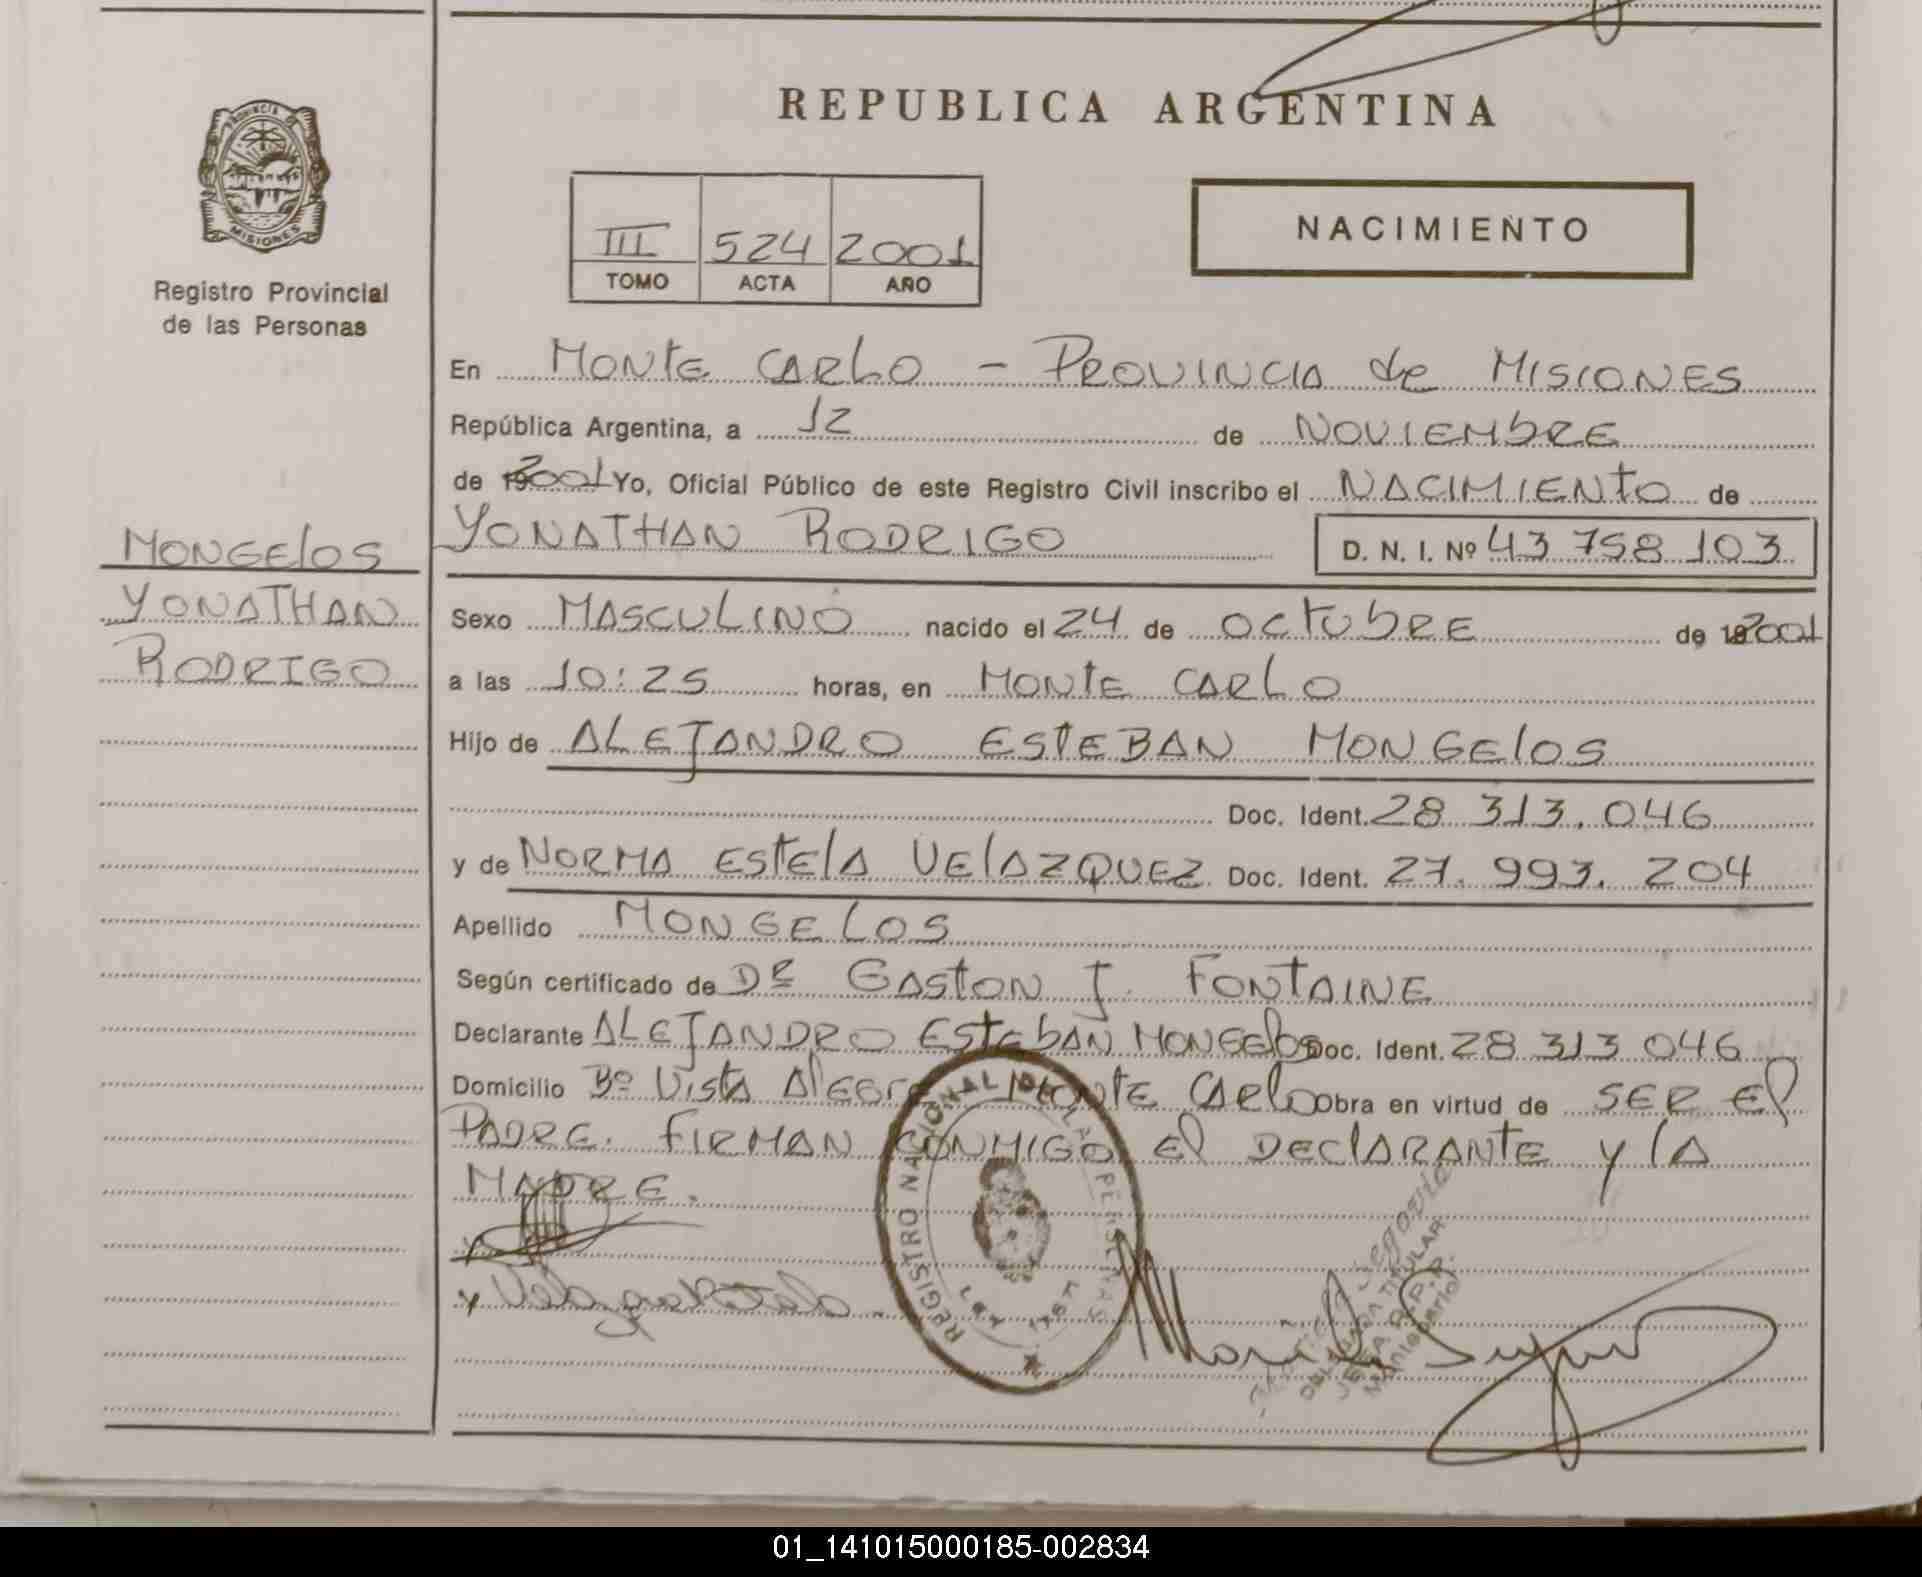 REPUBLICA ARGENTINA
PROVINCIA DE
MISIONES
Registro Provincial
de las Personas
III 524 2001
TOMO ACTA AÑO
NACIMIENTO
En MONTE CARLO - PROVINCIA de MISIONES
República Argentina, a 12 de NOVIEMBRE
de 2001 Yo, Oficial Público de este Registro Civil inscribo el NACIMIENTO de
YONATHAN RODRIGO D. N. I. Nº 43 758 103
MONGELOS
YONATHAN
RODRIGO
Sexo MASCULINO nacido el 24 de OCTUBRE de 2001
a las 10:25 horas, en MONTE CARLO
Hijo de ALEJANDRO ESTEBAN MONGELOS
Doc. Ident. 28 313.046
y de NORMA ESTELA VELAZQUEZ Doc. Ident. 27.993.204
Apellido MONGELOS
Según certificado de Dr GASTON J. FONTAINE
Declarante ALEJANDRO ESTEBAN MONGELOS Doc. Ident. 28 313 046
Domicilio Bº Vista Alegre MONTE CARLO Obra en virtud de SER El
PADRE. FIRMAN CONMIGO El DECLARANTE y LA
MADRE.
REGISTRO NACIONAL DE LAS PERSONAS
DELEGADA TITULAR
JEFA R.P.P.
01_141015000185-002834